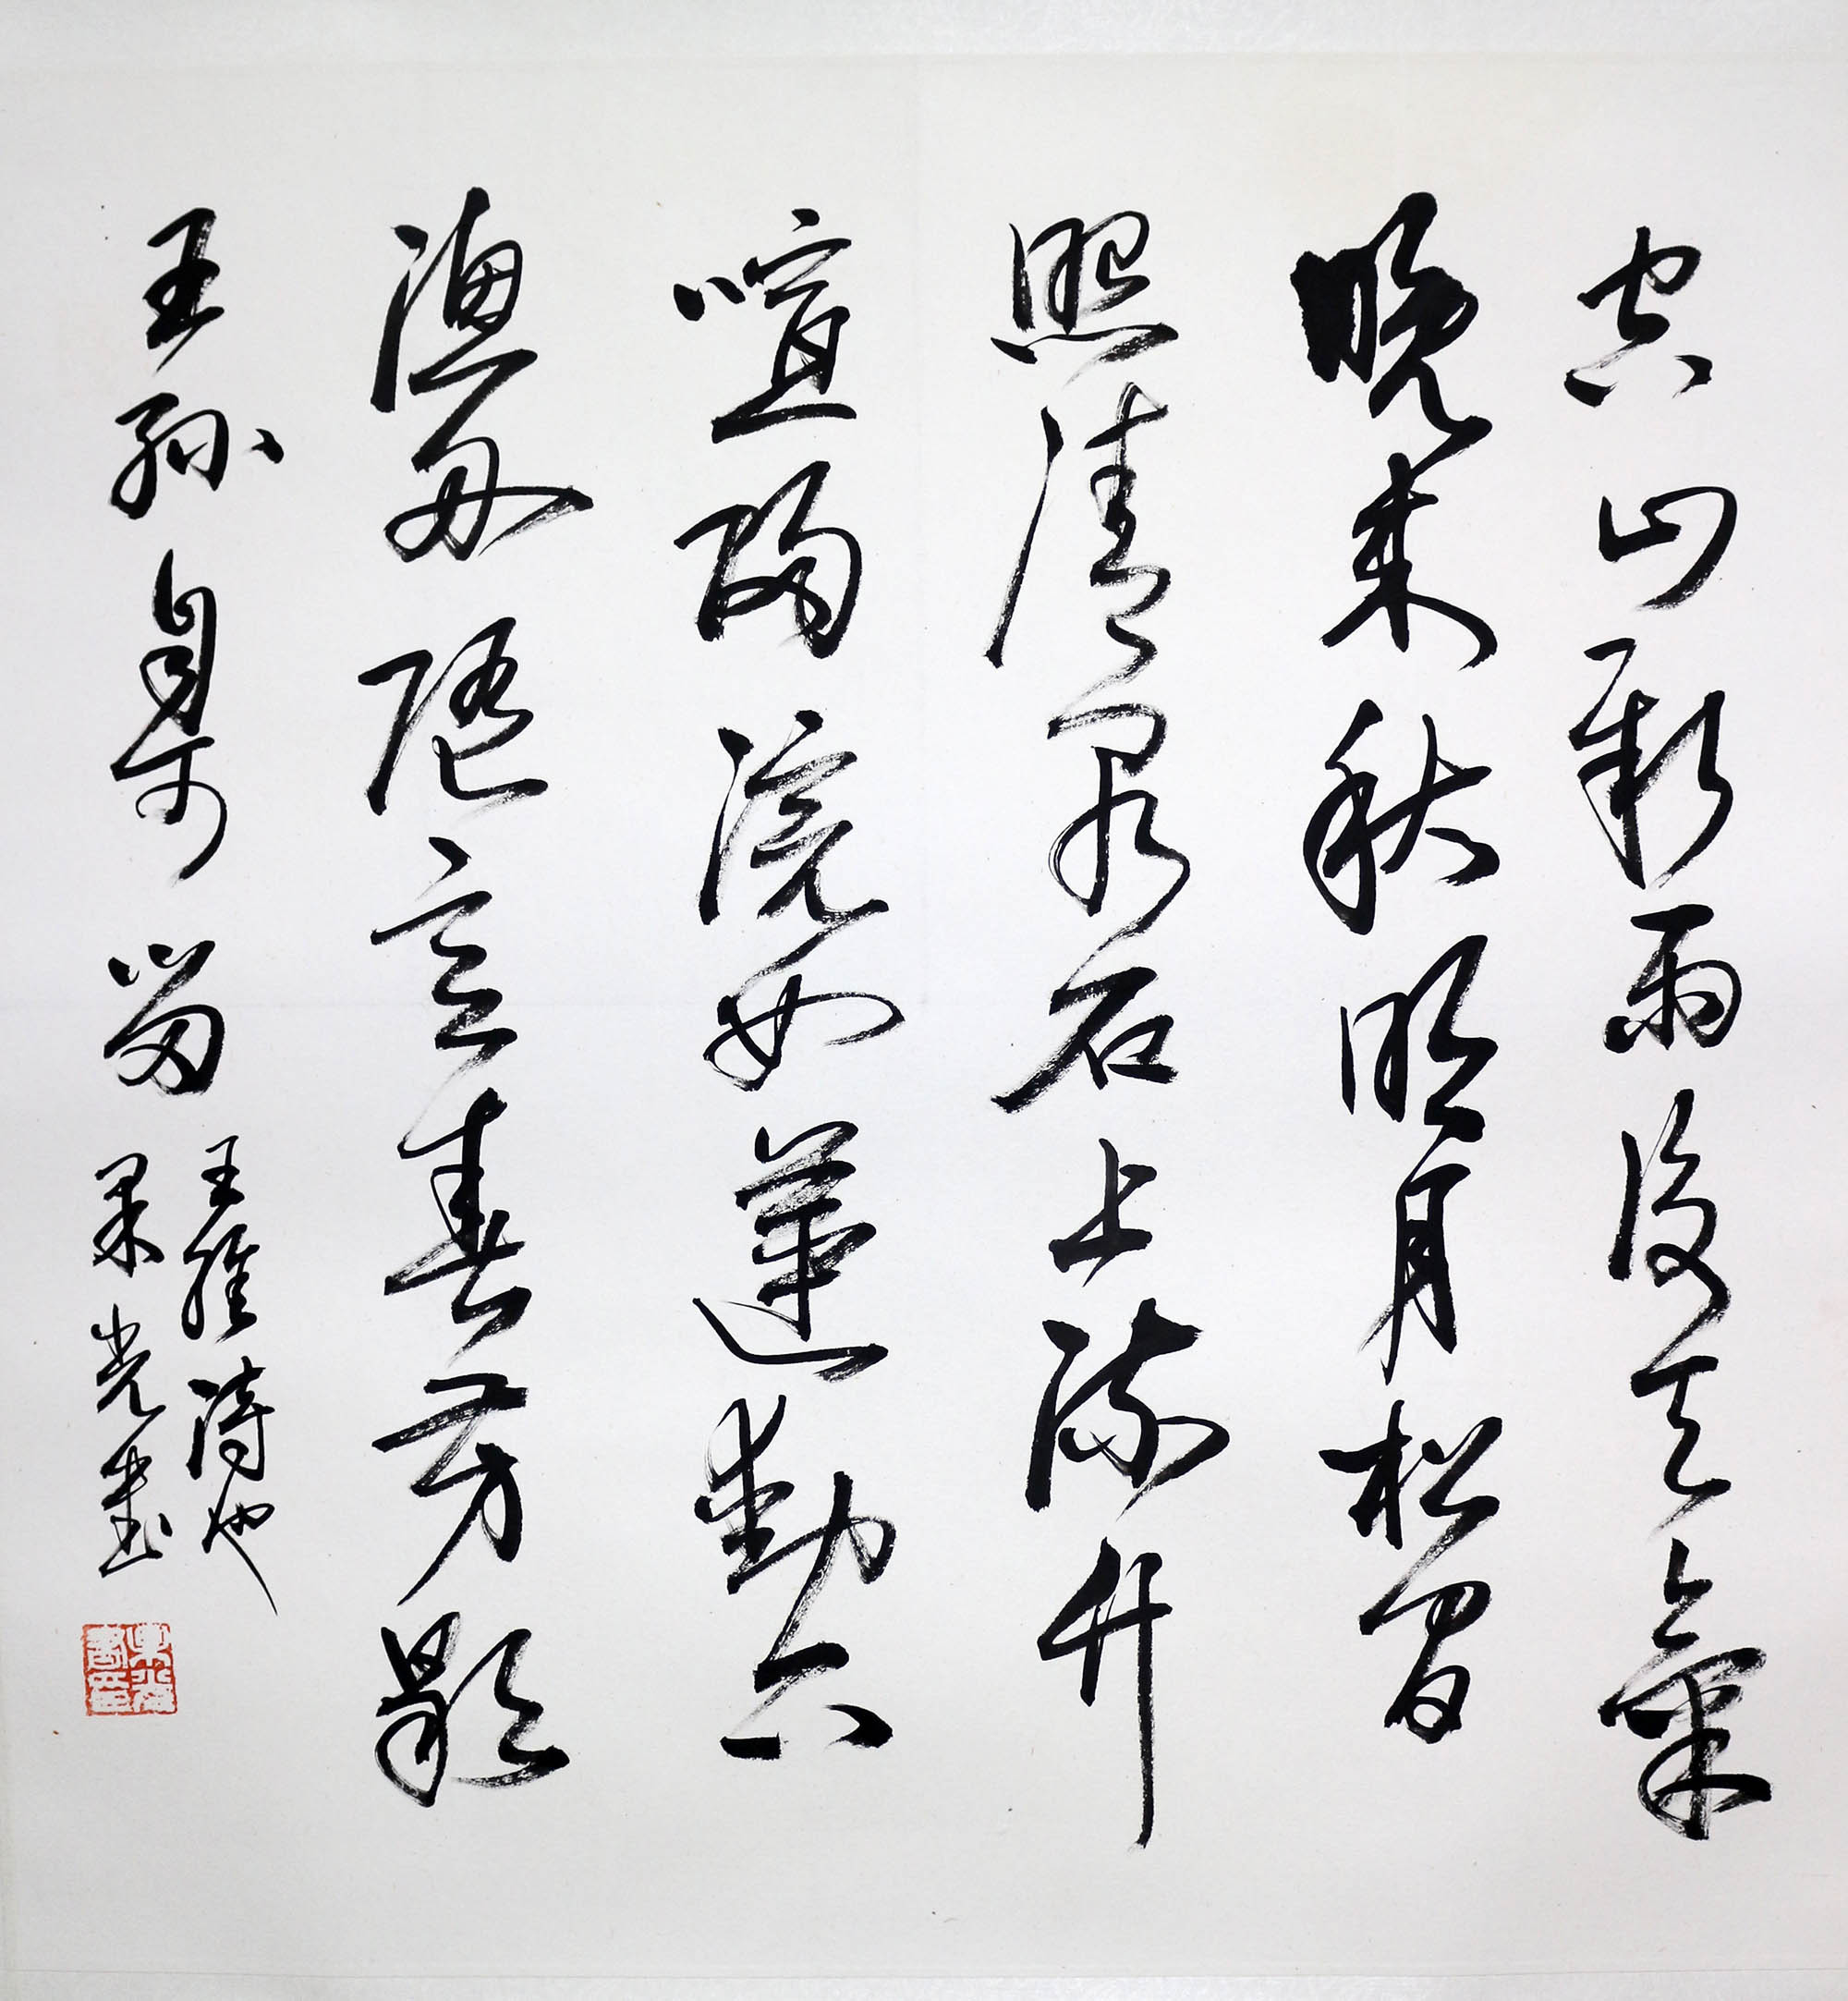 空山新雨後天氣
晚来秋明月松間
照清泉石上流竹
喧歸浣女蓮動下
漁舟隨意春芳歇
王孫自可留
王維詩也
光書